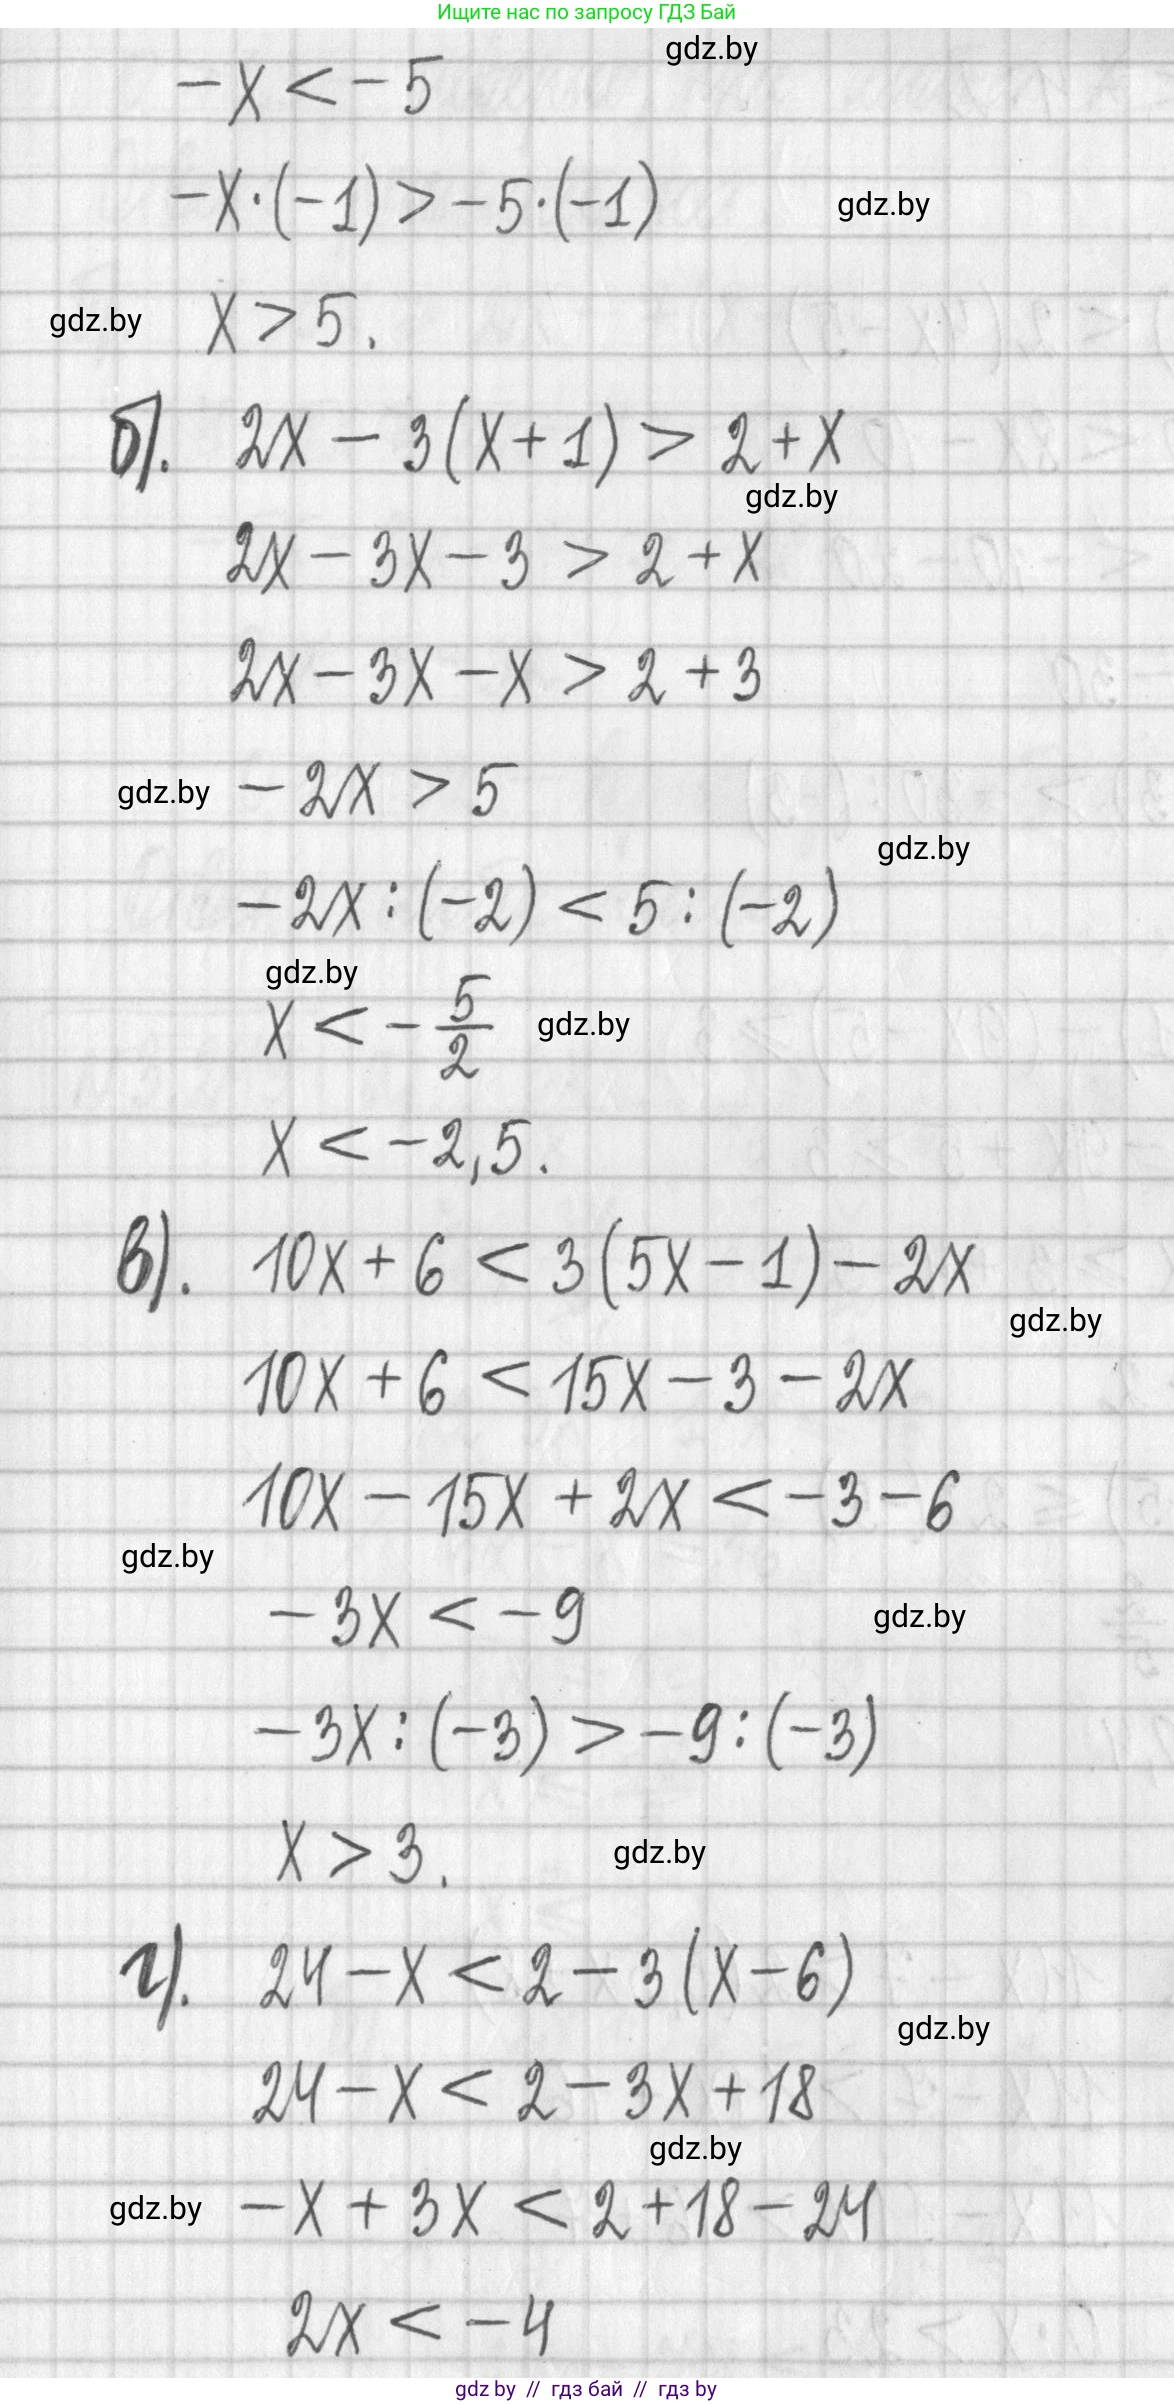 Ищите нас по запросу ГДЗ Бай
gdz.by
-x < -5
-x·(-1) > -5·(-1)
gdz.by
gdz.by
x > 5.
б). 2x - 3(x+1) > 2+x
gdz.by
2x - 3x - 3 > 2 + x
2x - 3x - x > 2 + 3
gdz.by
-2x > 5
gdz.by
-2x : (-2) < 5 : (-2)
gdz.by
x < -5/2
gdz.by
x < -2,5.
в). 10x + 6 < 3(5x - 1) - 2x
gdz.by
10x + 6 < 15x - 3 - 2x
10x - 15x + 2x < -3 - 6
gdz.by
-3x < -9
gdz.by
-3x : (-3) > -9 : (-3)
x > 3.
gdz.by
г). 24 - x < 2 - 3(x - 6)
gdz.by
24 - x < 2 - 3x + 18
gdz.by
gdz.by
-x + 3x < 2 + 18 - 24
2x < -4
gdz by // гдз бай // гдз by